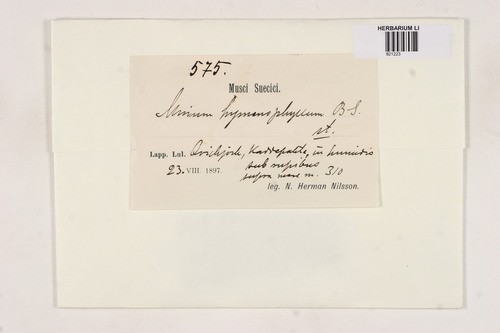 HERBARIUM LI
921223
575.
Musci Suecici.
Mnium hymenophyllum B. S.
st.
Lapp. Lul. Qvickjock, in humidis
sub rupibus
23. VIII. 1897. supra mare m. 310
leg. N. Herman Nilsson.